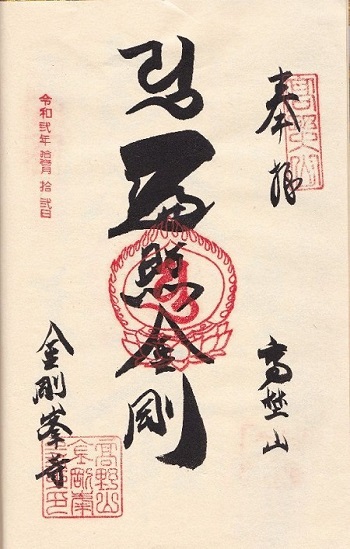 奉拝
高野山
遍照金剛
金剛峯寺
令和弐年 拾壱月 拾弐日
高野山
高野山
金剛峯
寺之印